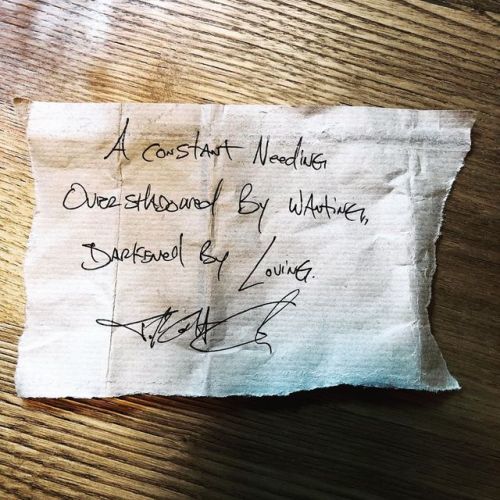 A CONSTANT NEEDING
OVERSHADOWED BY WANTING,
DARKENED BY LOVING.